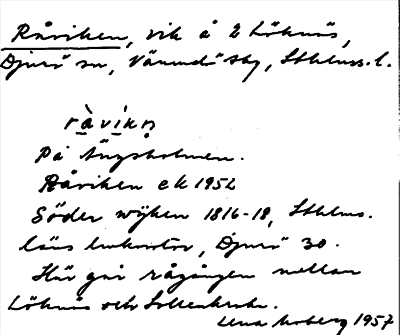 Råviken, vik å 2 Löknäs,
Djurö sn, Värmdö skg, Sthlms. l.
ràvíkn̥
På Ängsholmen.
Råviken ek 1952
Söder wijken 1816-18, Sthlms.
läns lmkontor, Djurö 30.
Här går rågången mellan
Löknäs och Sollenkroka.
Lena Moberg 1957